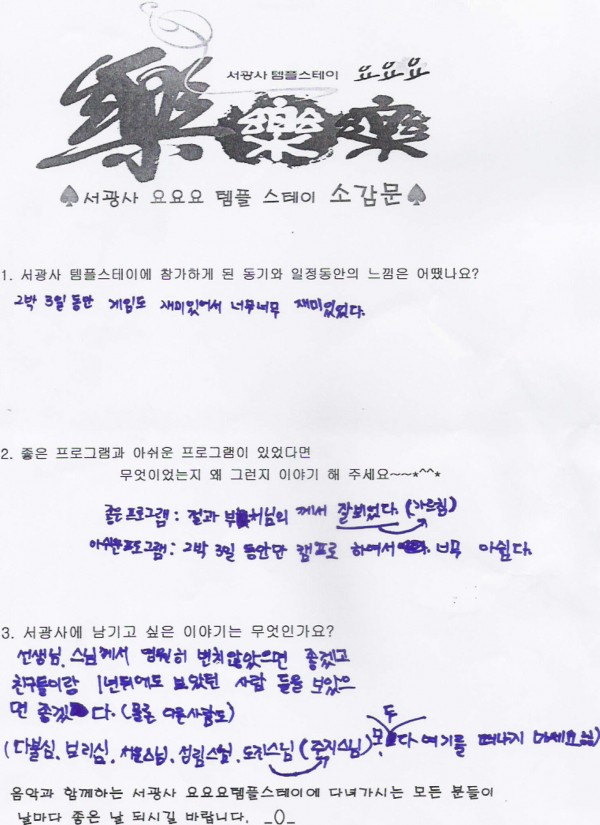 서광사 템플스테이 요요요
樂 樂 樂
♠서광사 요요요 템플 스테이 소감문♠
1. 서광사 템플스테이에 참가하게 된 동기와 일정동안의 느낌은 어땠나요?
2박 3일 동안 게임도 재미있어서 너무너무 재미있었다.
2. 좋은 프로그램과 아쉬운 프로그램이 있었다면
무엇이었는지 왜 그런지 이야기 해 주세요~~*^^*
좋은프로그램 : 절과 부처님의 께서 잘되었다. (가르침)
아쉬운프로그램 : 2박 3일 동안만 캠프로 하여서 너무 아쉽다.
3. 서광사에 남기고 싶은 이야기는 무엇인가요?
선생님, 스님께서 영원히 변치않았으면 좋겠고
친구들이랑 1년뒤에도 보았던 사람 들을 보았으
면 좋겠다. (물론 다른사람도)
(다불심, 보리심, 스님, 도진스님 (주지스님) 모두다 여기를 떠나지 마세요
음악과 함께하는 서광사 요요요템플스테이에 다녀가시는 모든 분들이
날마다 좋은 날 되시길 바랍니다. _0_